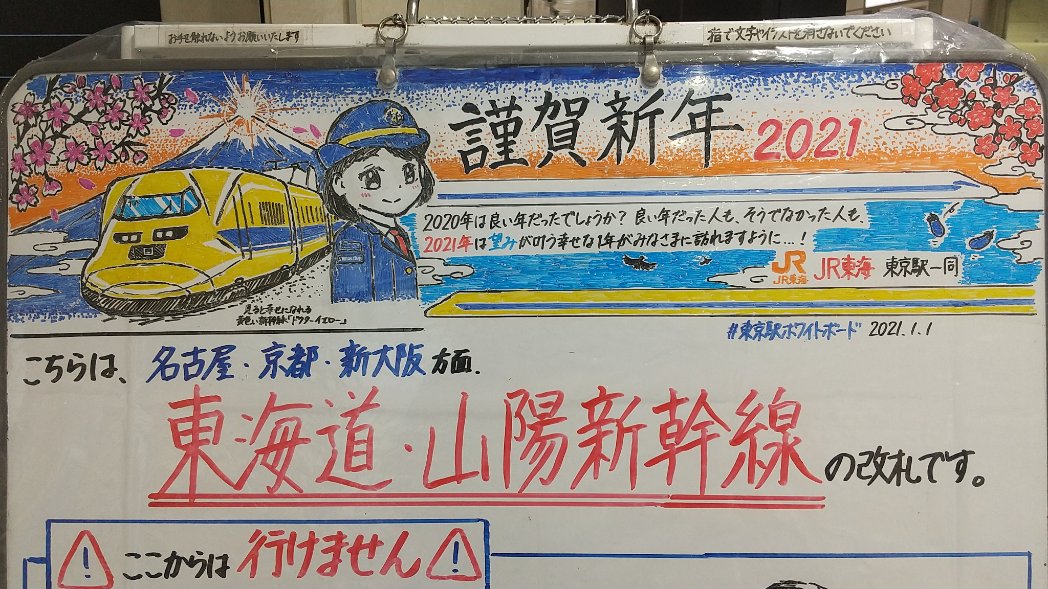 お手を触れないようお願いいたします
指で文字やイラストを消さないでください
謹賀新年 2021
2020年は良い年だったでしょうか？良い年だった人も、そうでなかった人も、
2021年は望みが叶う幸せな1年がみなさまに訪れますように…！
JR
JR東海
JR東海 東京駅一同
見ると幸せになれる
黄色い新幹線「ドクターイエロー」
#東京駅ホワイトボード 2021.1.1
こちらは、名古屋・京都・新大阪方面、
東海道・山陽新幹線の改札です。
ここからは行けません